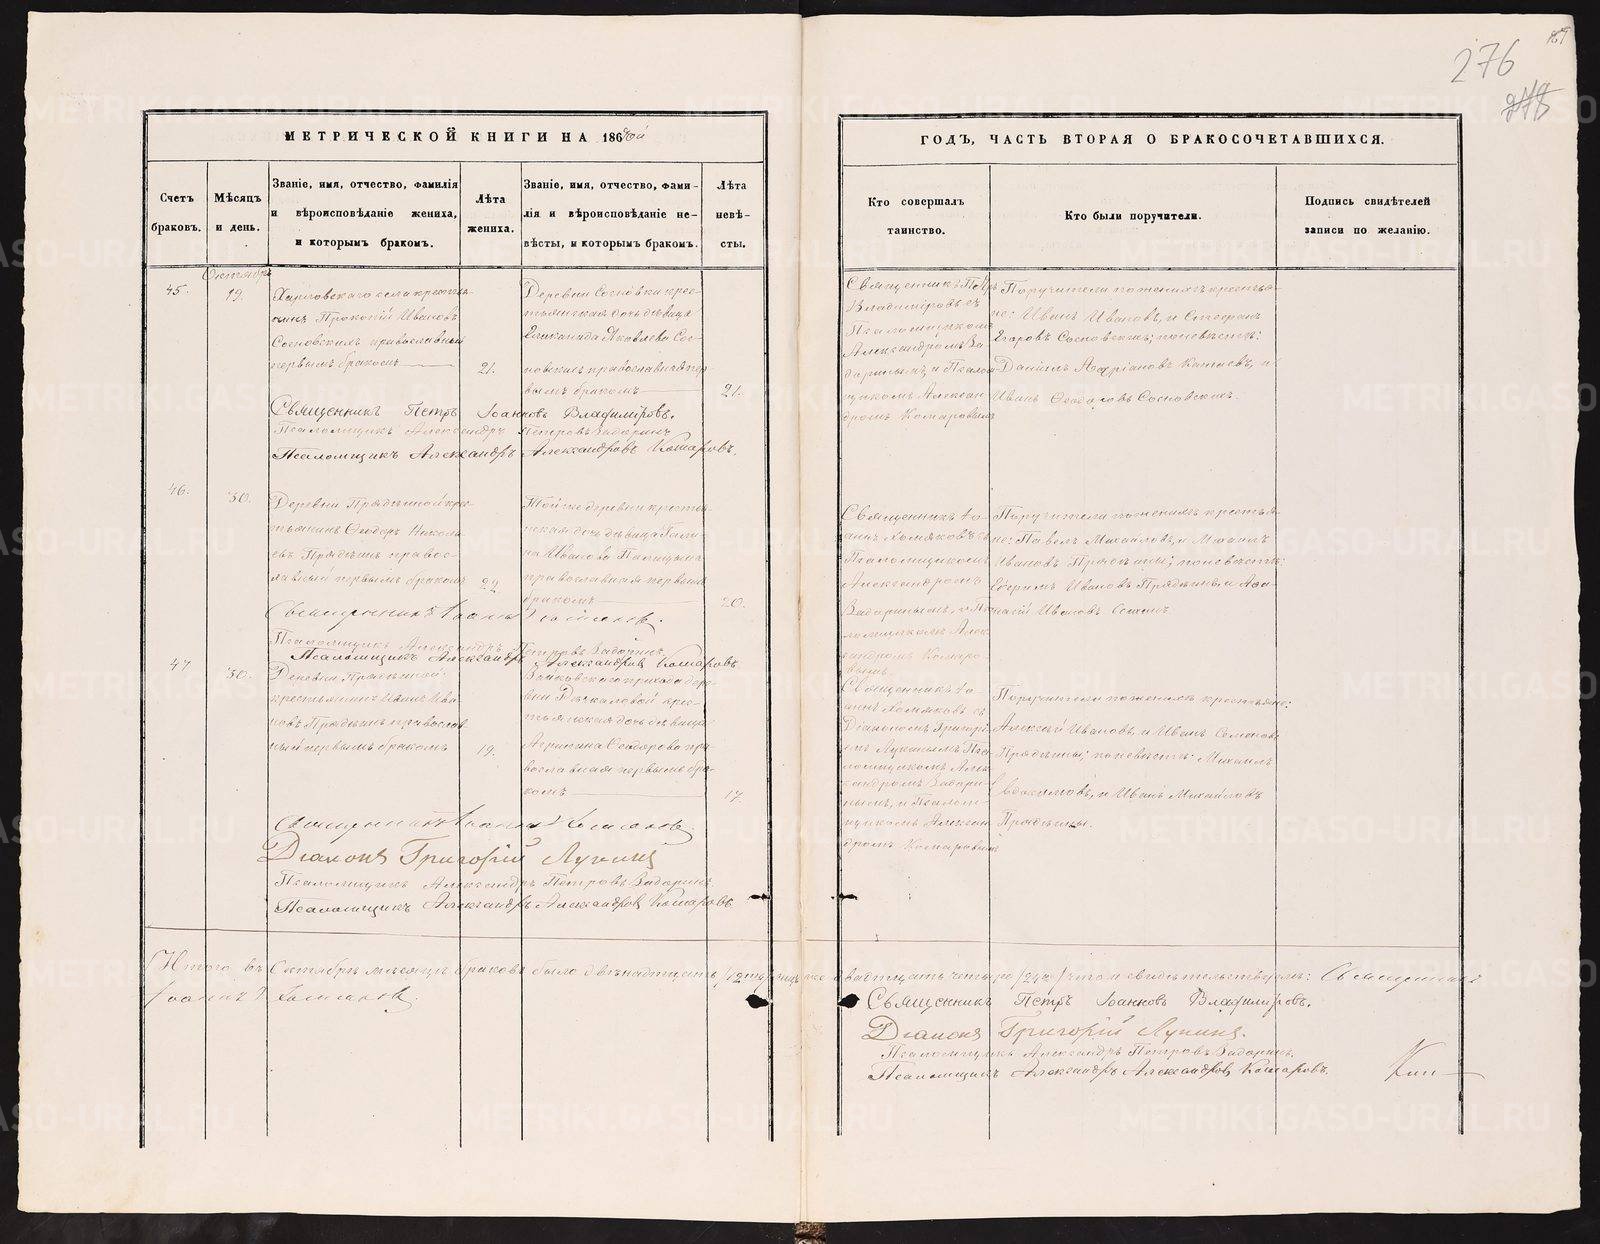 276
МЕТРИЧЕСКОЙ КНИГИ НА 186
ГОДЪ, ЧАСТЬ ВТОРАЯ О БРАКОСОЧЕТАВШИХСЯ.
Счетъ
браковъ.
Мѣсяцъ
и день.
Званіе, имя, отчество, фамилія
и вѣроисповѣданіе жениха,
и которымъ бракомъ.
Лѣта
жениха.
Званіе, имя, отчество, фами-
лія и вѣроисповѣданіе не-
вѣсты, и которымъ бракомъ.
Лѣта
невѣ-
сты.
Кто совершалъ
таинство.
Кто были поручители.
Подпись свидѣтелей
записи по желанію.
Октября
45.
19.
села крестья-
нинъ Прокопій Ивановъ
Сосновскихъ православный
первымъ бракомъ
21.
Деревни Сосновки крес-
тьянская дочь дѣвица
Яковлева Сос-
новскихъ православная пер-
вымъ бракомъ
21.
Священникъ Петръ
Владиміровъ съ
Псаломщикомъ
Александромъ За-
доринымъ и Псалом-
щикомъ Алексан-
дромъ Комаровымъ
Поручители по женихѣ крестья-
не: Иванъ Ивановъ, и Стефанъ
Егоровъ Сосновскихъ; по невѣстѣ:
Даніилъ Андріановъ и
Иванъ Ѳеодоровъ Сосновскихъ.
Священникъ Петръ Іоанновъ Владиміровъ.
Псаломщикъ Александръ Петровъ Задоринъ
Псаломщикъ Александръ Александровъ Комаровъ.
46.
30.
Деревни Прядеиной крес-
тьянинъ Ѳеодоръ Никола-
евъ Прядеинъ правос-
лавный первымъ бракомъ
22
Той же деревни крестьян-
ская дочь дѣвица Гали-
на Иванова
православная первымъ
бракомъ
20.
Священникъ Іо-
аннъ Хомяковъ съ
Псаломщикомъ
Александромъ
Задоринымъ, и Пса-
ломщикомъ Алек-
сандромъ Комаро-
вымъ
Поручители по женихѣ крестья-
не: Павелъ Михайловъ, и Михаилъ
Ивановъ Прядеины; по невѣстѣ:
Ефремъ Ивановъ Прядеинъ, и Аѳа-
насій Ивановъ
Священникъ Іоаннъ Хомяковъ.
Псаломщикъ Александръ Петровъ Задоринъ.
Псаломщикъ Александръ Александровъ Комаровъ
47
30.
Деревни Прядеиной
крестьянинъ Иванъ Ива-
новъ Прядеинъ православ-
ный первымъ бракомъ
19.
прихода дере-
вни крес-
тьянская дочь дѣвица
Агрипина Ѳеодорова пра-
вославная первымъ бра-
комъ
17
Священникъ Іо-
аннъ Хомяковъ съ
Діакономъ Григорі-
емъ Лукинымъ Пса-
ломщикомъ Алек-
сандромъ Задори-
нымъ, и Псалом-
щикомъ Алексан-
дромъ Комаровымъ
Поручители по женихѣ крестьяне:
Алексѣй Ивановъ, и Иванъ Семеновъ
Прядеины; по невѣстѣ: Михаилъ
Евдокимовъ, и Иванъ Михайловъ
Прядеины.
Священникъ Іоаннъ Хомяковъ.
Діаконъ Григорій Лукинъ
Псаломщикъ Александръ Петровъ Задоринъ.
Псаломщикъ Александръ Александровъ Комаровъ.
Итого въ Октябрѣ мѣсяцѣ браковъ было двѣнадцать /12/ лицъ же двадцать четыре /24/ въ чемъ и свидѣтельствуемъ: Священникъ
Іоаннъ Хомяковъ.
Священникъ Петръ Іоанновъ Владиміровъ.
Діаконъ Григорій Лукинъ.
Псаломщикъ Александръ Петровъ Задоринъ.
Псаломщикъ Александръ Александровъ Комаровъ.
METRIKI.GASO-URAL.RU